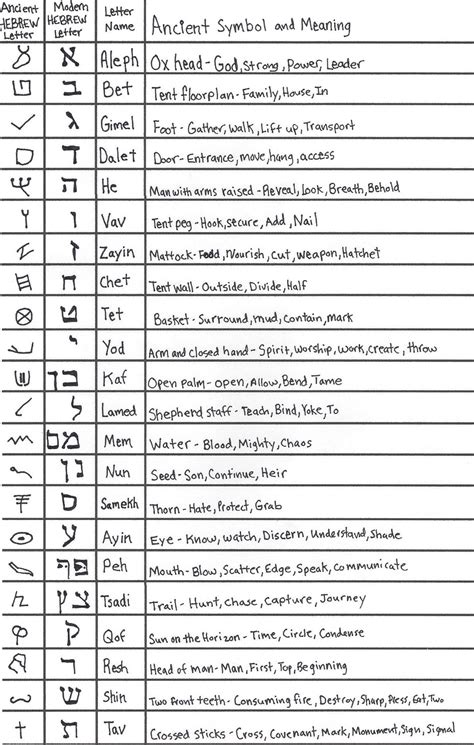 Ancient HEBREW Letter Modern HEBREW Letter Letter Name Ancient Symbol and Meaning
א Aleph Ox head-God, Strong, Power, Leader
ב Bet Tent floorplan-Family, House, In
ג Gimel Foot-Gather, Walk, Lift up, Transport
ד Dalet Door-Entrance, move, hang, access
ה He Man with arms raised-Reveal, Look, Breath, Behold
ו Vav Tent peg-Hook, secure, Add, Nail
ז Zayin Mattock-Food, Nourish, Cut, Weapon, Hatchet
ח Chet Tent wall-Outside, Divide, Half
ט Tet Basket-Surround, mud, contain, mark
י Yod Arm and closed hand-Spirit, Worship, Work, create, throw
כ ך Kaf Open palm-open, Allow, Bend, Tame
ל Lamed Shepherd staff-Teach, Bind, Yoke, To
מ ם Mem Water-Blood, Mighty, Chaos
נ ן Nun Seed-Son, Continue, Heir
ס Samekh Thorn-Hate, Protect, Grab
ע Ayin Eye-Know, Watch, Discern, Understand, Shade
פ ף Peh Mouth-Blow, Scatter, Edge, Speak, communicate
צ ץ Tsadi Trail-Hunt, Chase, Capture, Journey
ק Qof Sun on the Horizon-Time, Circle, Condense
ר Resh Head of man-Man, First, Top, Beginning
ש Shin Two front teeth-Consuming fire, Destroy, Sharp, Press, Eat, Two
ת Tav Crossed sticks-Cross, Covenant, Mark, Monument, Sign, Signal